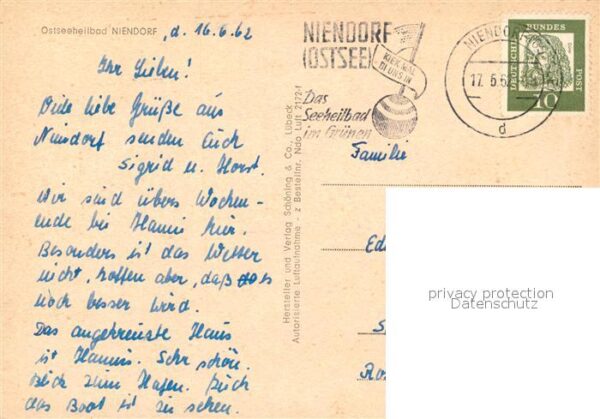 Ostseeheilbad NIENDORF
, d. 16.6.62
Ihr Lieben!
Viele liebe Grüße aus
Niendorf senden Euch
Sigrid u. Horst.
Wir sind übers Wochen-
ende bei Hanni hier.
Besonders ist das Wetter
nicht, hoffen aber, daß es
noch besser wird.
Das angekreuzte Haus
ist Hannis. Sehr schön.
Blick zum Hafen. Auch
das Boot ist zu sehen.
Hersteller und Verlag Schöning & Co., Lübeck
Autorisierte Luftaufnahme - z Bestellnr. Ndo Luft 2172-f
NIENDORF
(OSTSEE)
KIEK MAL
BI UNS IN
Das
Seeheilbad
im Grünen
NIENDORF
17. 6.6
d
DEUTSCHE BUNDES POST
10
Familie
Ed
S
Ros
privacy protection
Datenschutz